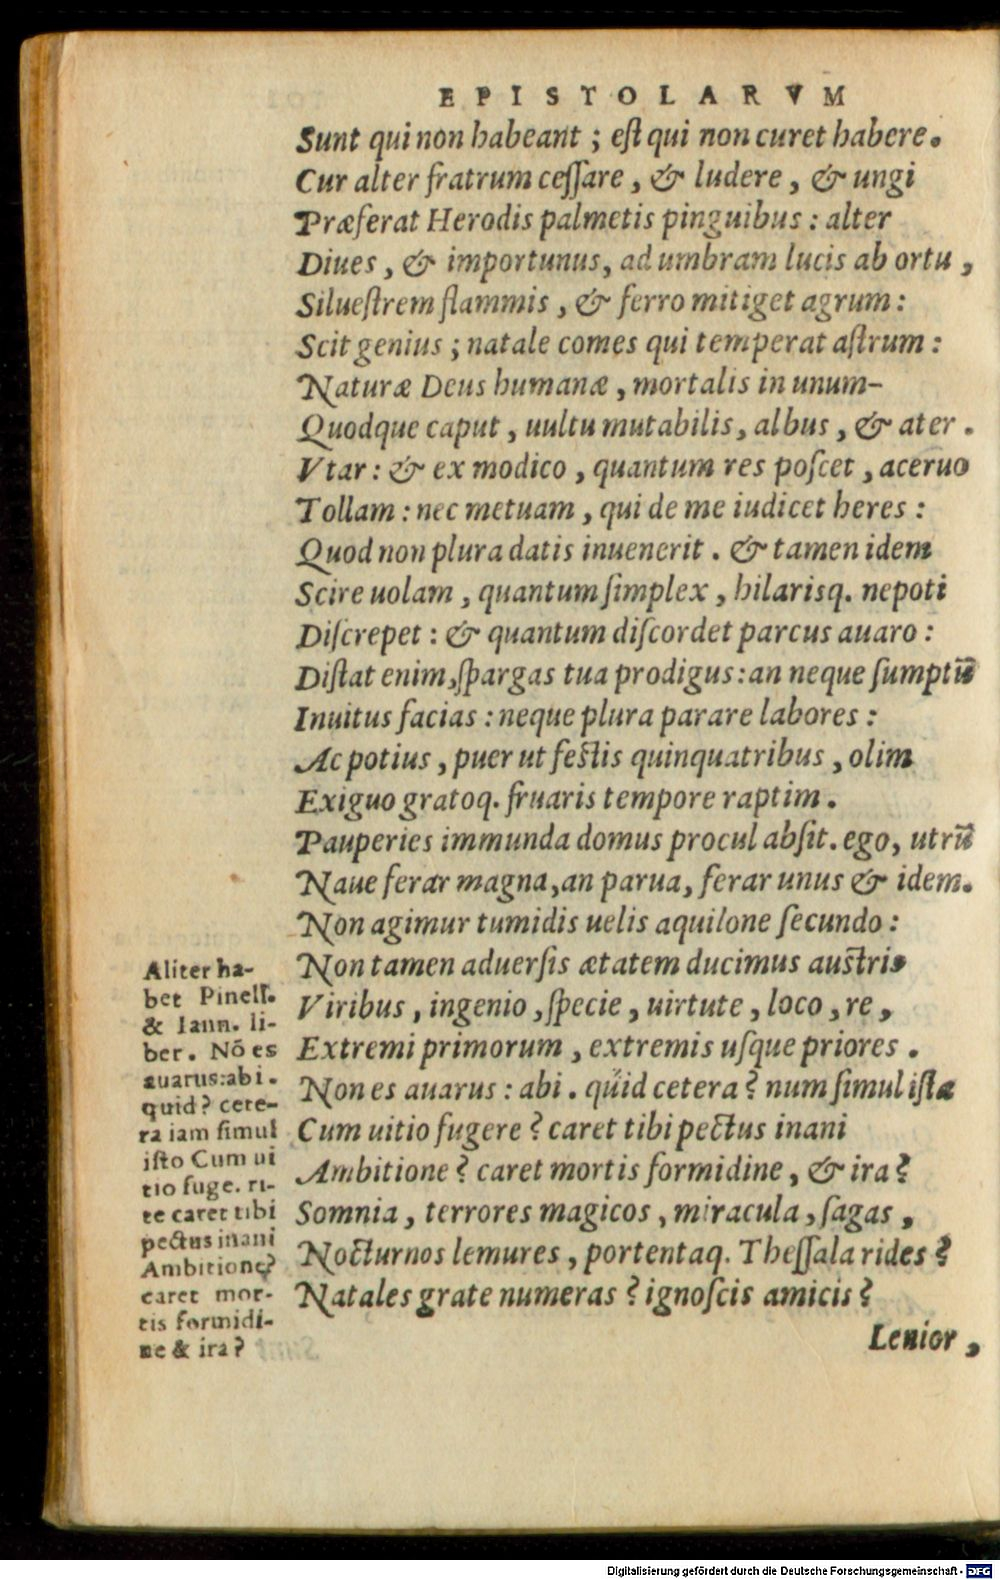 EPISTOLARVM
Sunt qui non habeant ; est qui non curet habere.
Cur alter fratrum cessare , & ludere , & ungi
Præferat Herodis palmetis pinguibus : alter
Diues , & importunus, ad umbram lucis ab ortu ,
Siluestrem flammis , & ferro mitiget agrum :
Scit genius ; natale comes qui temperat astrum :
Naturæ Deus humanæ , mortalis in unum-
Quodque caput , uultu mutabilis, albus , & ater .
Vtar : & ex modico , quantum res poscet , aceruo
Tollam : nec metuam , qui de me iudicet heres :
Quod non plura datis inuenerit . & tamen idem
Scire uolam , quantum simplex , hilarisq. nepoti
Discrepet : & quantum discordet parcus auaro :
Distat enim, spargas tua prodigus: an neque sumptū
Inuitus facias : neque plura parare labores :
Ac potius , puer ut festis quinquatribus , olim
Exiguo gratoq. fruaris tempore raptim .
Pauperies immunda domus procul absit. ego, utrū
Naue ferar magna, an parua, ferar unus & idem.
Non agimur tumidis uelis aquilone secundo :
Non tamen aduersis ætatem ducimus austris
Viribus , ingenio , specie , uirtute , loco , re ,
Extremi primorum , extremis usque priores .
Non es auarus : abi . quid cetera ? num simul ista
Cum uitio fugere ? caret tibi pectus inani
Ambitione ? caret mortis formidine , & ira ?
Somnia , terrores magicos , miracula , sagas ,
Nocturnos lemures , portentaq. Thessala rides ?
Natales grate numeras ? ignoscis amicis ?
Lenior ,
Aliter ha-
bet Pinell.
& Iann. li-
ber . Nō es
auarus: abi .
quid ? cete-
ra iam simul
isto Cum ui
tio fuge. ri-
te caret tibi
pectus inani
Ambitione?
caret mor-
tis formidi-
ne & ira ?
Digitalisierung gefördert durch die Deutsche Forschungsgemeinschaft - DFG